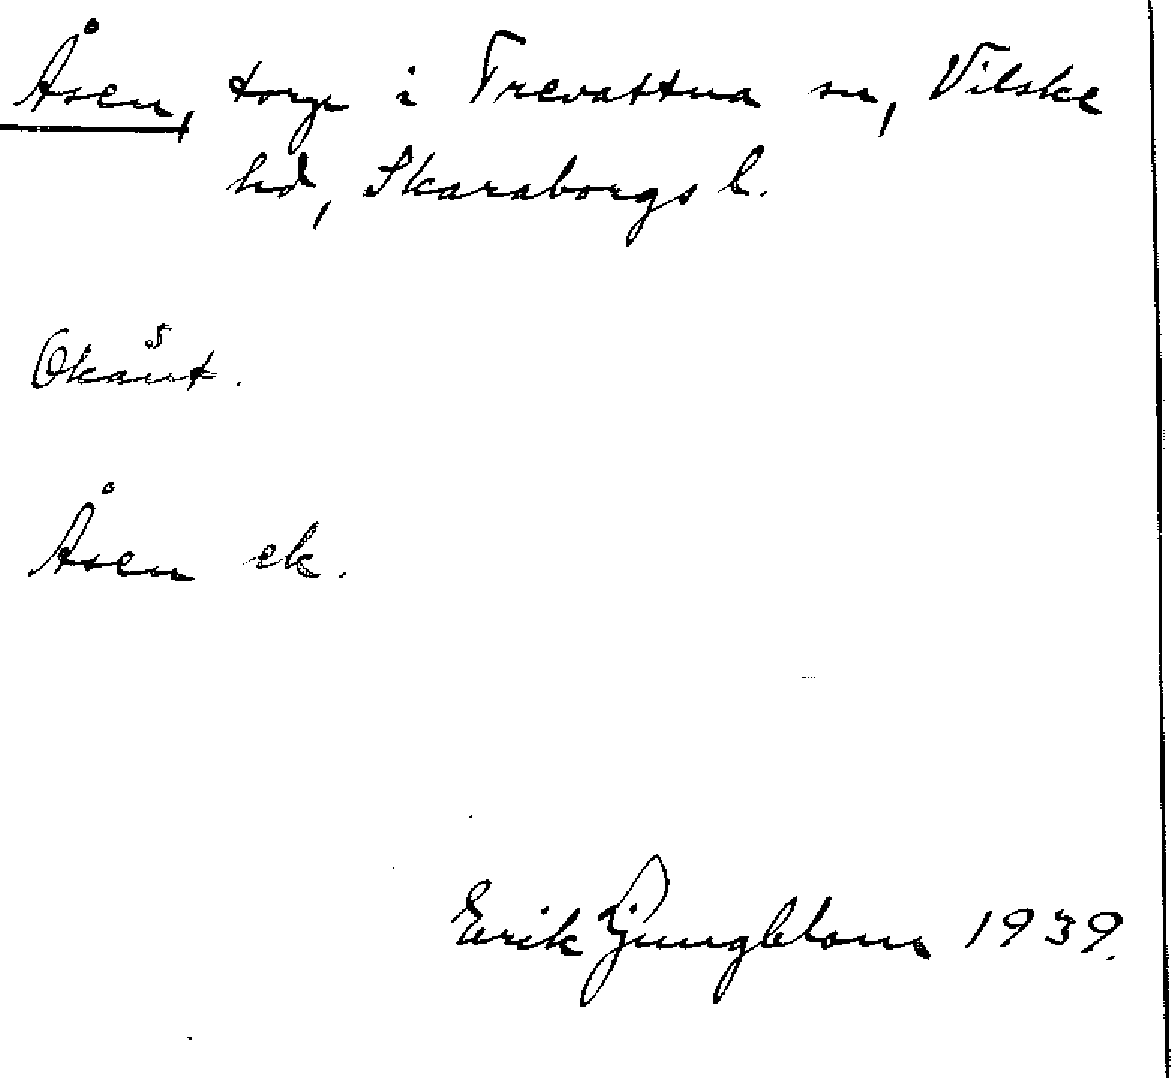 Åsen, torp i Trevattna sn, Vilske
hd, Skaraborgs l.
Okänt.
Åsen ek.
Erik Ljungblom 1939.